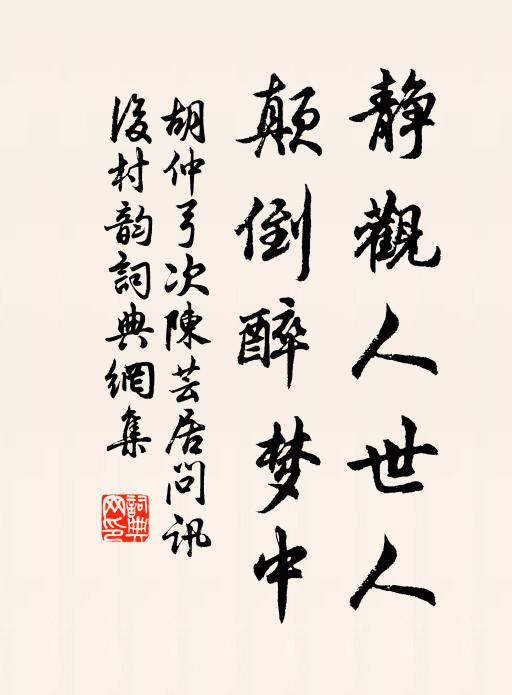 静觀人世人
顛倒醉梦中
胡仲弓次陳芸居問訊
後村韵詞典網集
詞典
网印